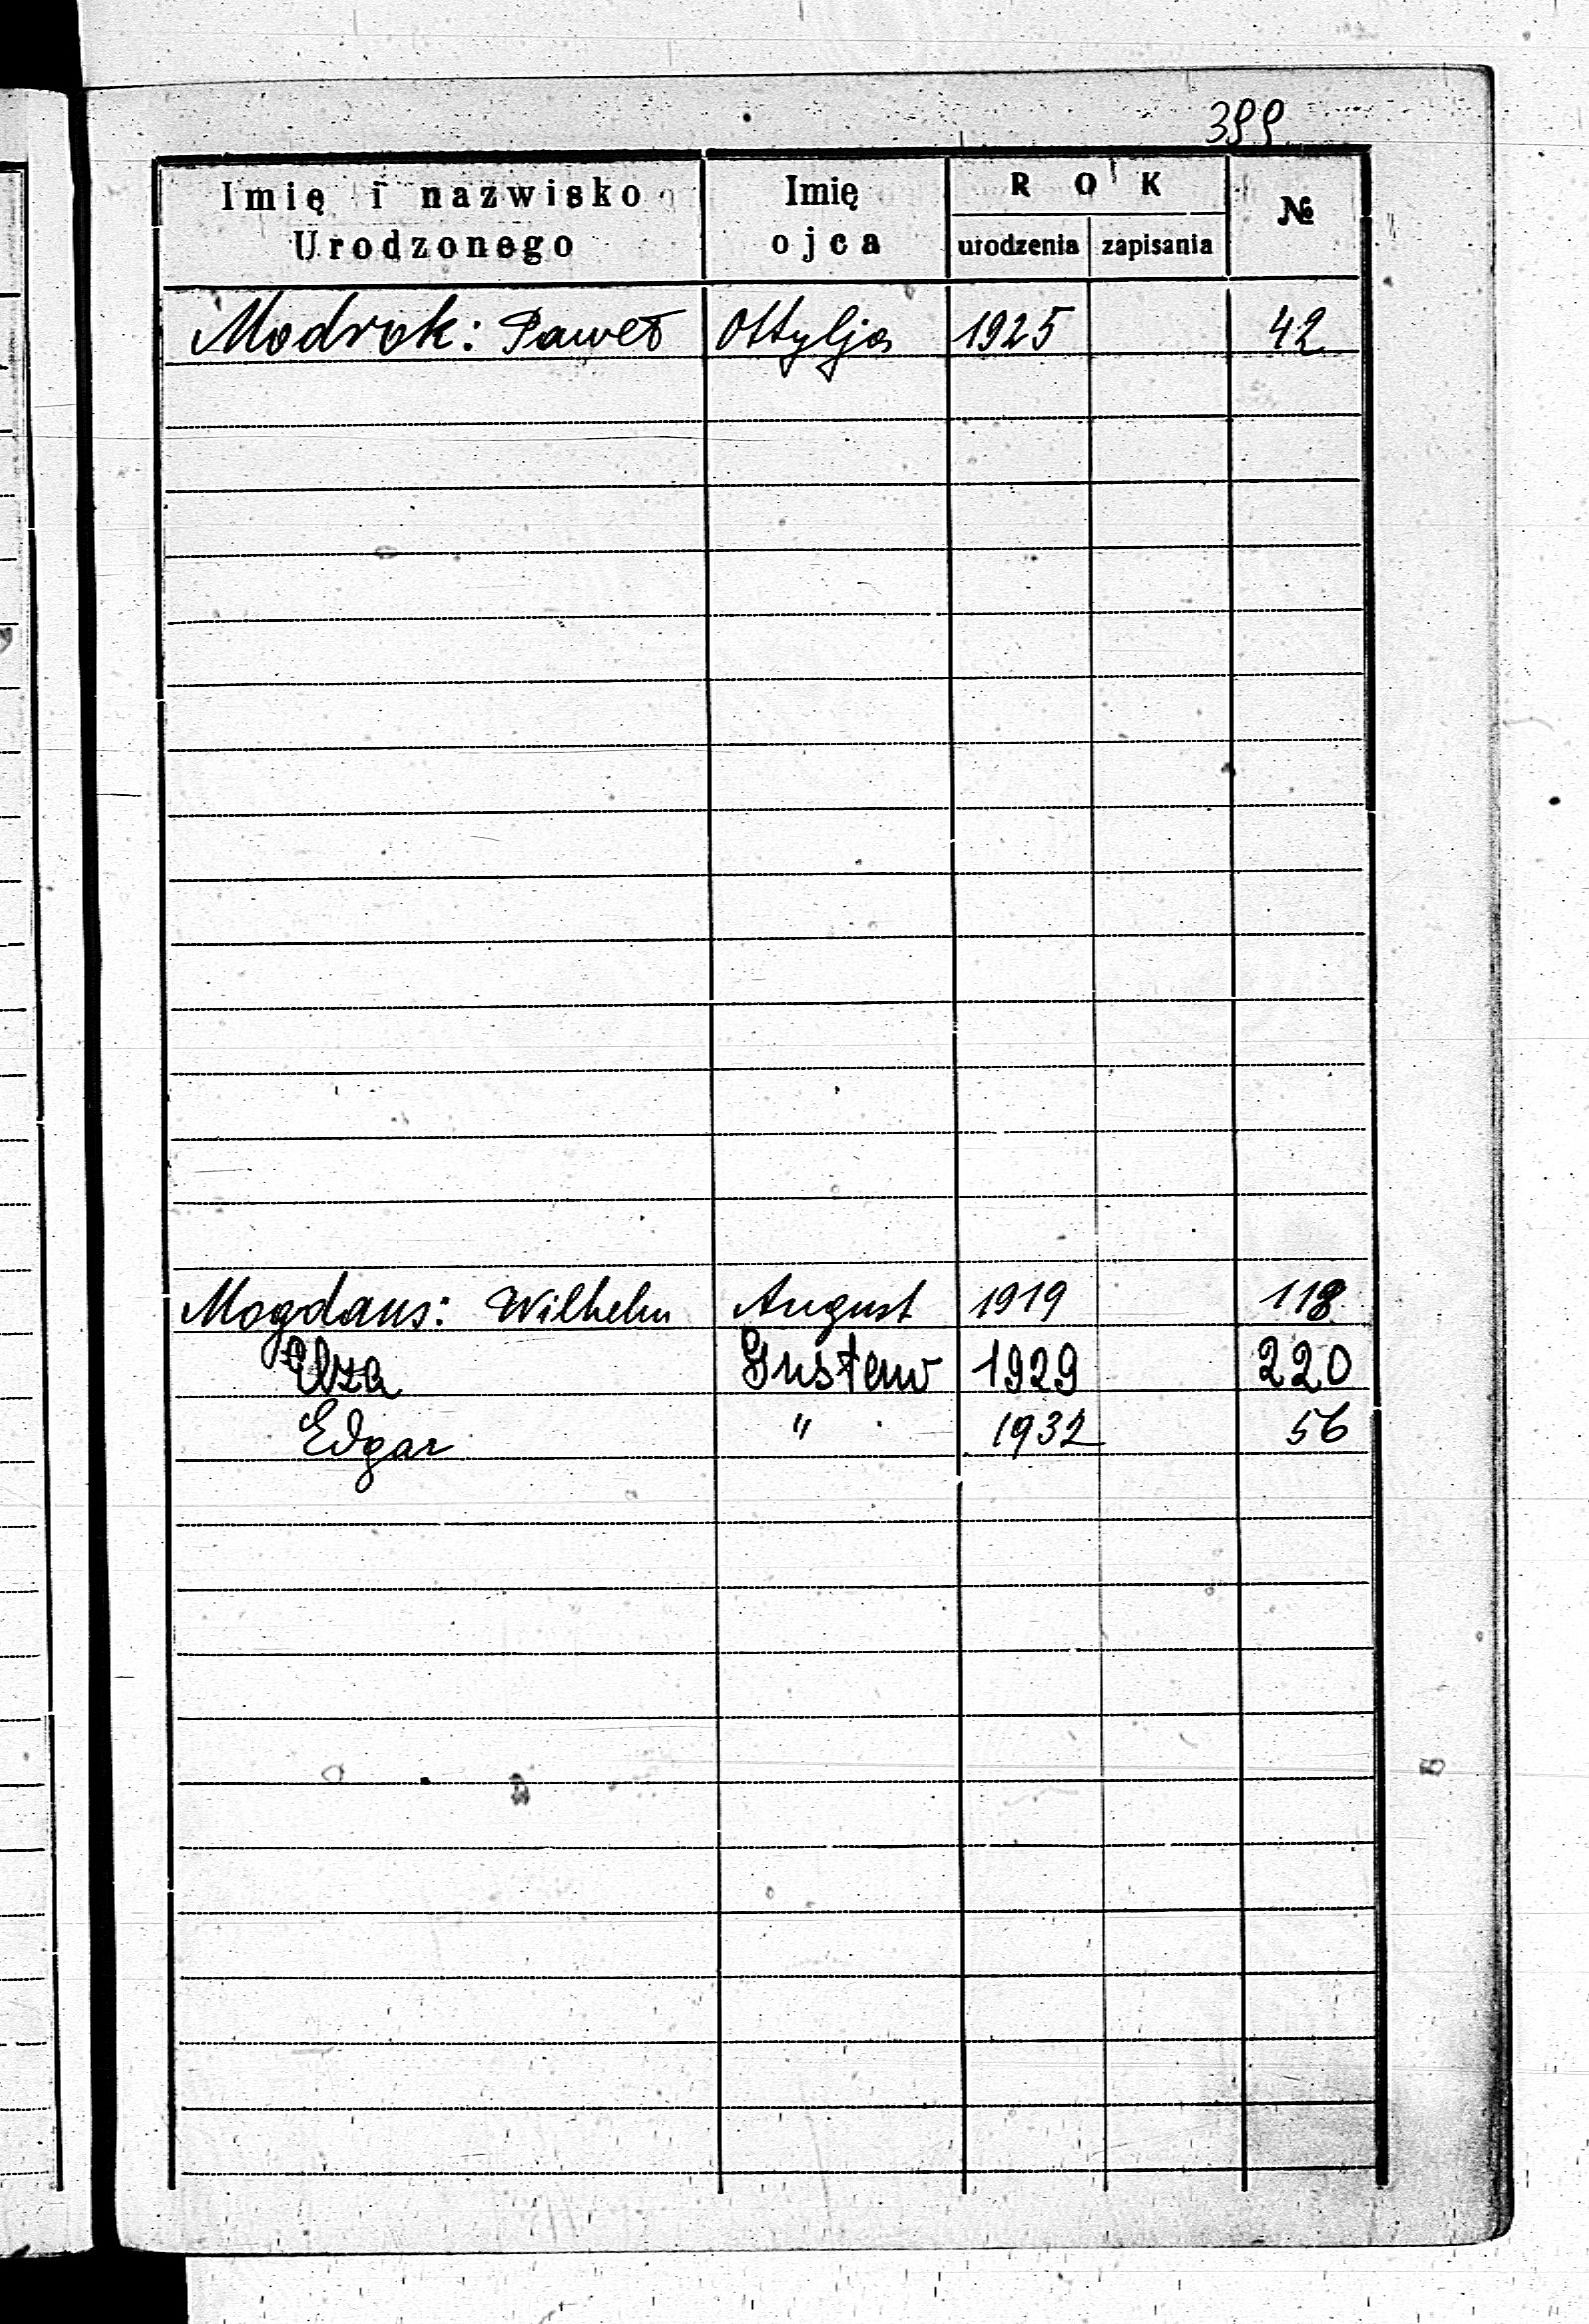 399
Imię i nazwisko Urodzonego | Imię ojca | ROK urodzenia | zapisania | №
Modrok: Paweł | Ottylja | 1925 | | 42
Mogdans: Wilhelm | August | 1919 | | 118
Elza | Gustaw | 1929 | | 220
Edgar | " | 1932 | | 56